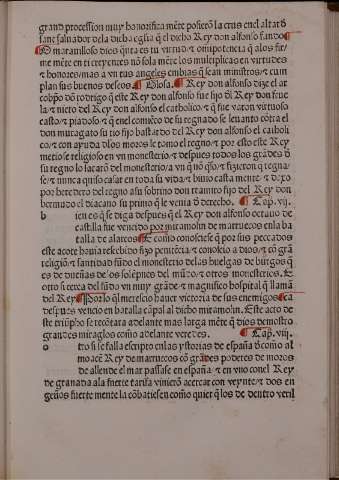 grand procession muy honorifica mēte posierō la cruz enel altar d̄
sanc saluador dela dicha eglia q̄ el dicho Rey don alfonso fundo
O marauilloso dios quāta es tu virtud ⁊ omnipotencia q̄ alos fir-
me mēte en ti creyentes nō sola mēte los multiplicas en virtudes
⁊ honores: mas a vn tus angeles embias q̄ sean ministros ⁊ cum
plan sus buenos deseos. Glosa. Rey don alfonso dize el ar
cobp̄o dō rodrigo q̄ este Rey don alfonso fue fijo dl Rey don frue
la ⁊ nieto del Rey don alfonso el catholico. ⁊ q̄ fue varon virtuoso
casto ⁊ piadoso ⁊ q̄ enel comēço de su regnado se leuanto cōtra el
don muragato su tio fijo bastardo del Rey don alfonso el catholi
co ⁊ con ayuda dlos moros le tomo el regno ⁊ por esto este Rey
metiose religioso en vn monesterio ⁊ despues todos los grādes d̄
su regno lo sacarō del monesterio a vn q̄ nō q̄so ⁊ fizieron q̄ regna-
se ⁊ nunca quiso casar en toda su vida ⁊ biuio casta mente ⁊ dexo
por heredero del regno asu sobrino don ramiro fijo del Rey don
bermudo el diacano su primo q̄ le venia d̄ derecho. Cap. vij.
b ien es q̄ se diga despues q̄l Rey don alfonso octauo de
castilla fue vencido por miramolin de marruecos enla ba
talla de alarcos. E como conosciese q̄ por sus peccados
este açote hauia rescebido fizo penitēcia ⁊ conosio a dios ⁊ cō grā
religiō ⁊ santidad fūdo el monesterio delas huelgas de burgos q̄
es de dueñas delos solēpnes del mūdo ⁊ otros monesterios. E
otro si cerca del fūdo vn muy grāde ⁊ magnifico hospital q̄ llamā
del Rey Porlo q̄l merescio hauer victoria de sus enemigos ca
despues vencio en batalla cāpal al dicho miramolin. Este acto de
este triūpho se recōtara adelante mas larga mēte q̄ dios demostro
grandes miraglos comō adelante veredes. Cap. viij.
o tro si se falla escripto enlas ystorias de españa d̄ comō al
moacē Rey de marruecos cō grādes poderes de moros
de allende el mar passase en españa ⁊ en vno conel Rey
de granada ala fuerte tarifa vinierō acercar con veynte ⁊ dos en
geños fuerte mente la cōbatiesen comō quier q̄ los de dentro vexil